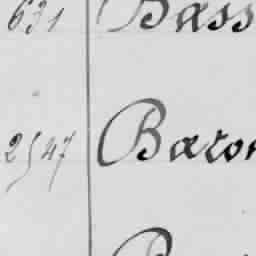 631 Bass
2547 Baron